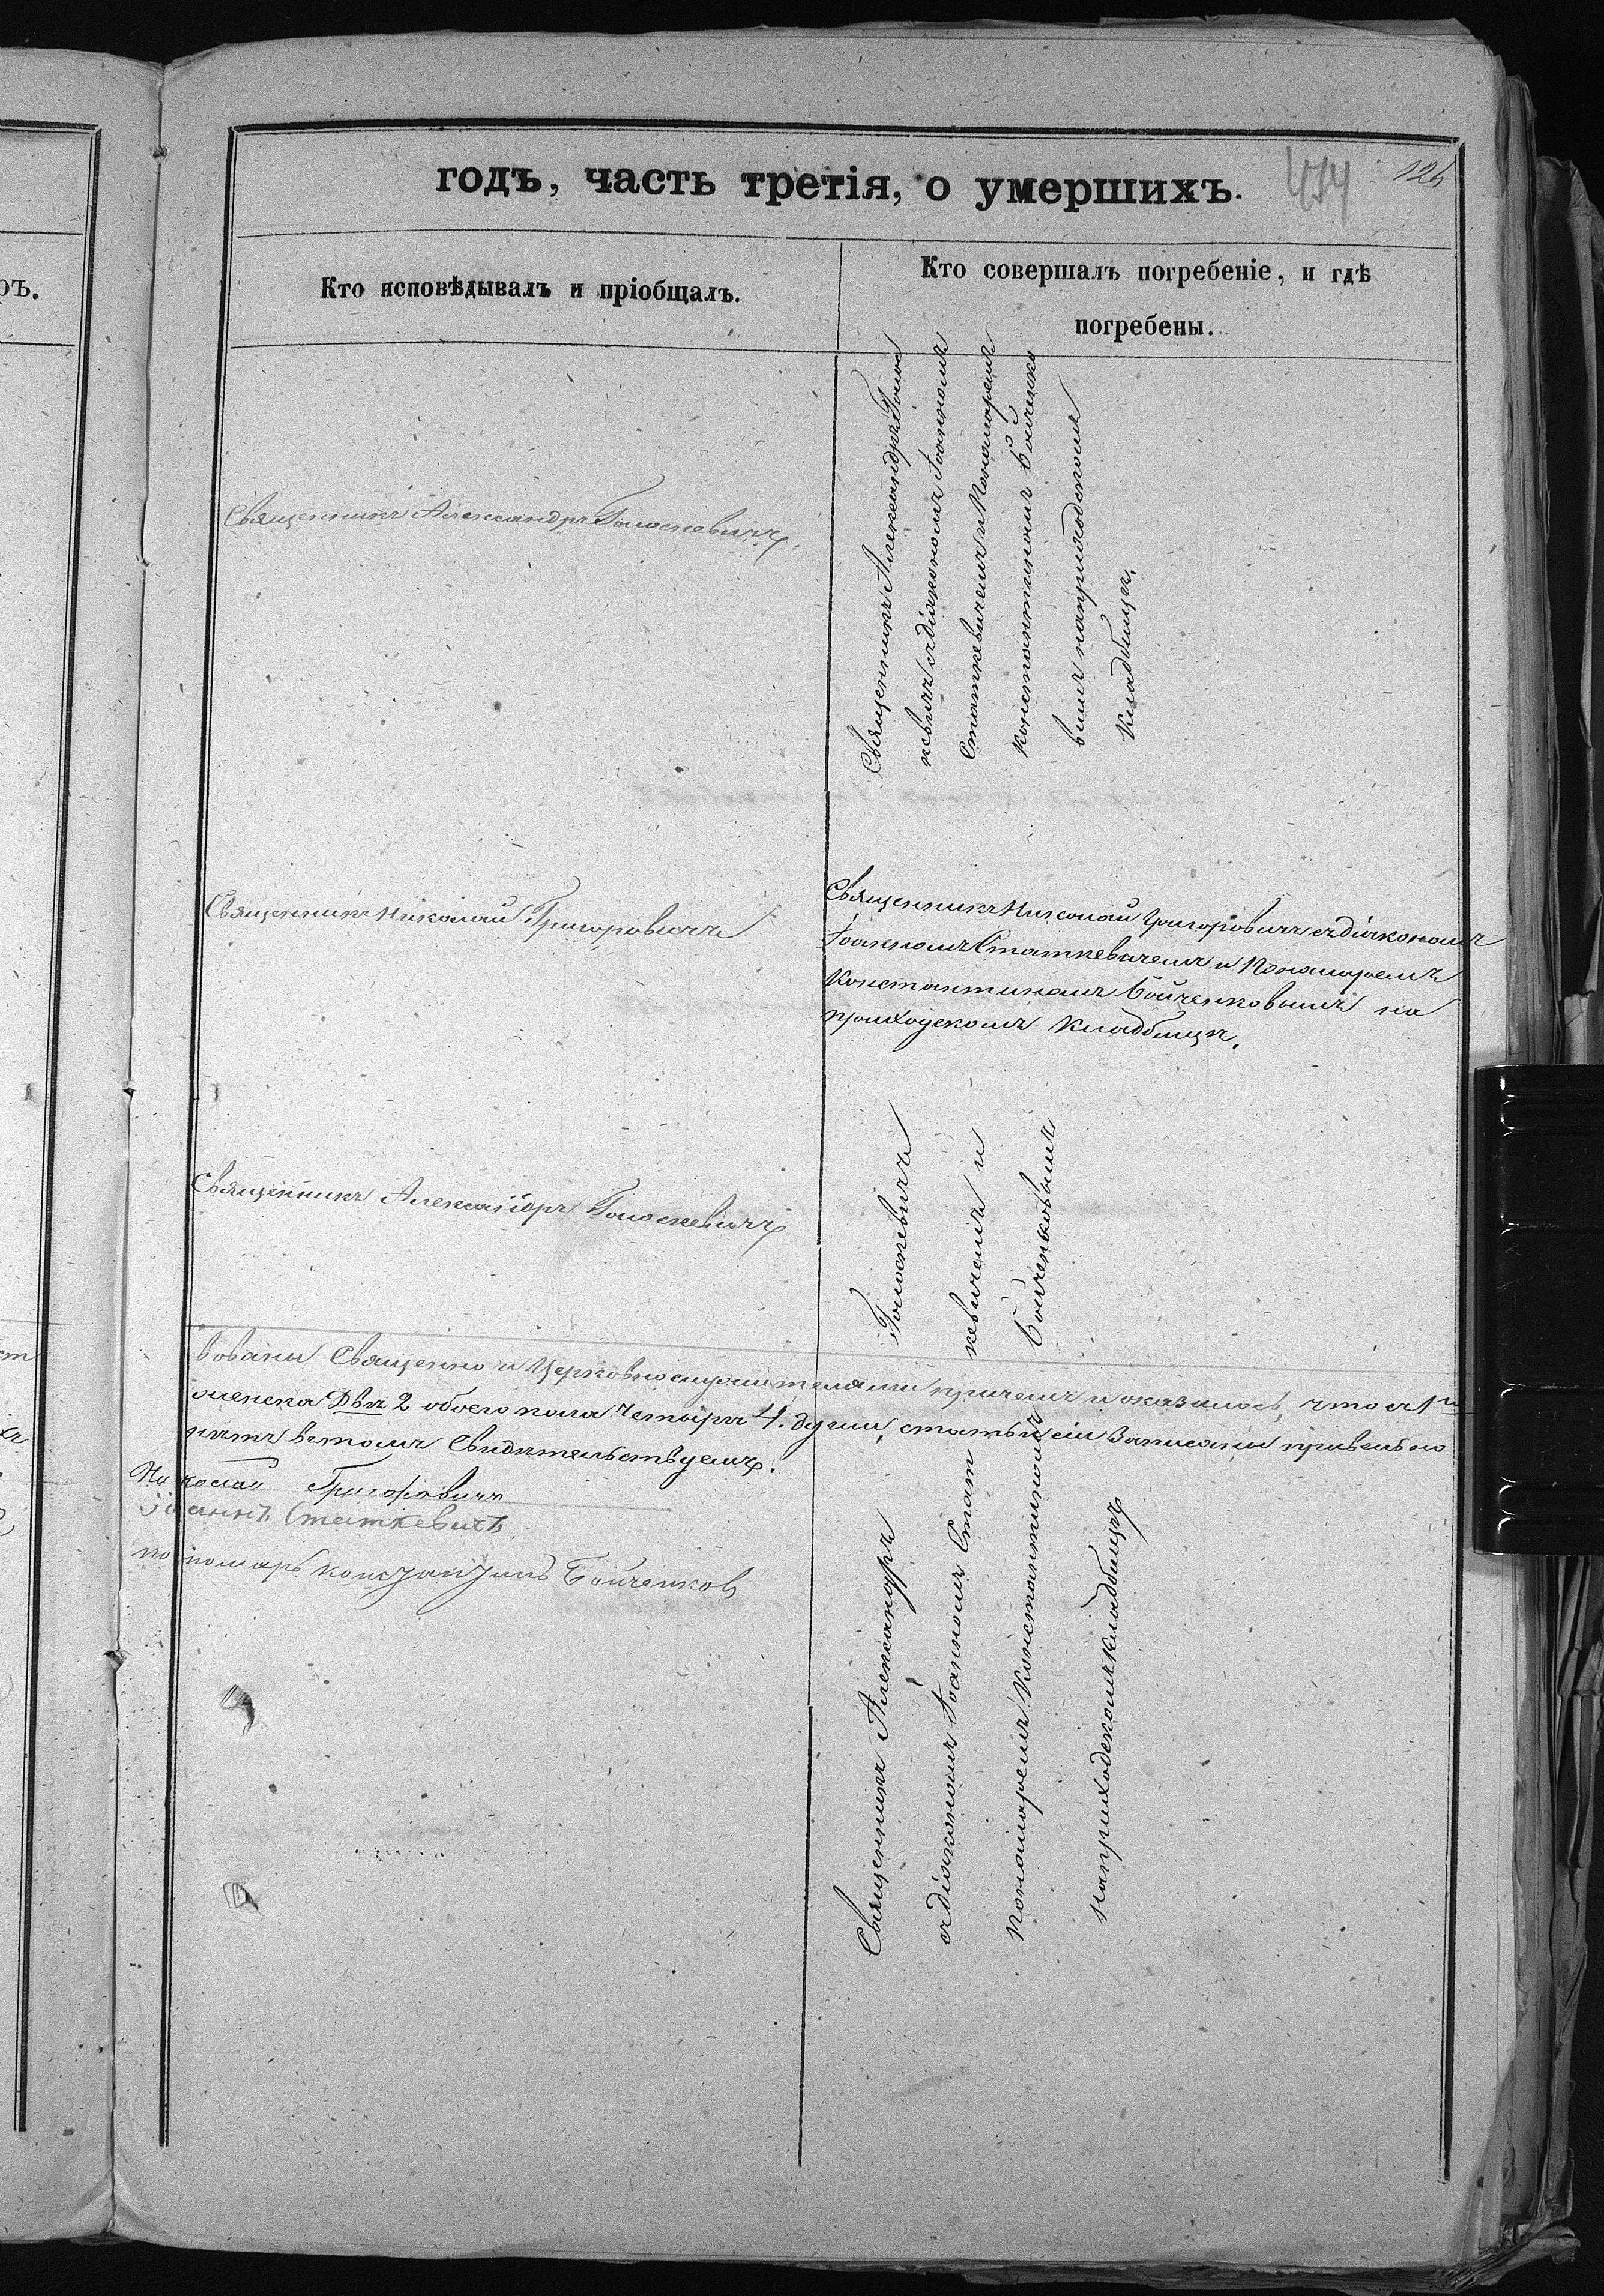 годъ, часть третія, о умершихъ.
474 126
Кто исповѣдывалъ и пріобщалъ.
Кто совершалъ погребеніе, и гдѣ
погребены.
Священникъ Александръ Голоскевичъ.
Священникъ Александръ Голос
кевичъ съ діакономъ Іоанномъ
Статкевичемъ и Пономаремъ
Константиномъ Бойченко
вымъ на приходскомъ
кладбищѣ.
Священникъ Николай Григоровичъ
Священникъ Николай Григоровичъ съ діакономъ
Іоанномъ Статкевичемъ и Пономаремъ
Константиномъ Бойченковымъ на
приходскомъ кладбищѣ.
Священникъ Александръ Голоскевичъ
Священникъ Александръ Голоскевичъ
съ діакономъ Іоанномъ Стат кевичемъ и
пономаремъ Константиномъ Бойченковымъ
на приходскомъ кладбищѣ
вованы Священно и Церковнослужителями причемъ и оказалось, что съ 1го
женска Два 2 обоего пола Четыре 4. души, статьи сіи записаны правельно
нятъ въ томъ Свидѣтельствуемъ.
Николай Григоровичъ
Іоаннъ Статкевичъ
пономарь Константинъ Бойченковъ
ръ.